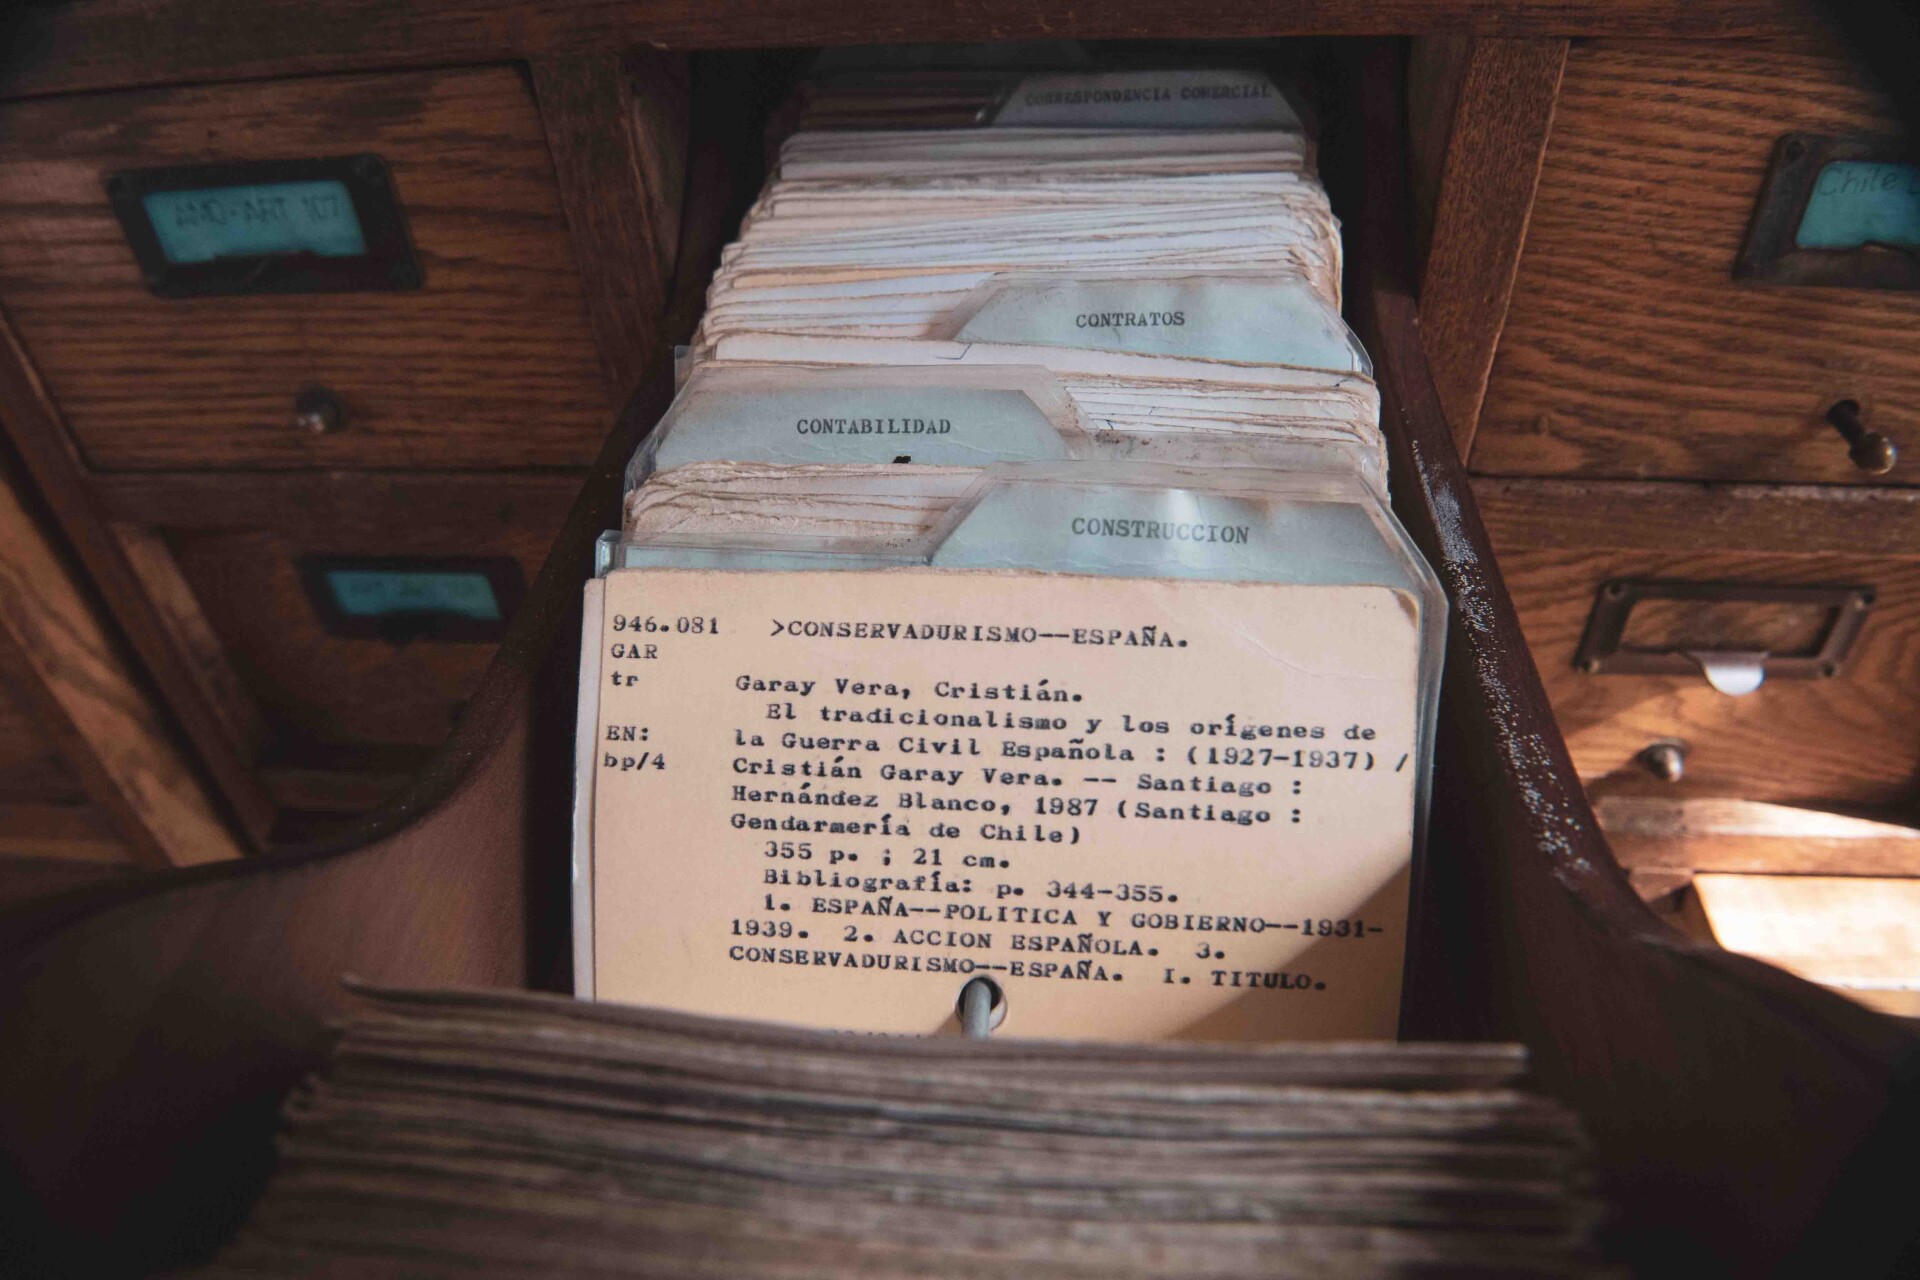 CORRESPONDENCIA COMERCIAL
Chile
CONTRATOS
CONTABILIDAD
CONSTRUCCION
946.081 >CONSERVADURISMO--ESPAÑA.
GAR
tr Garay Vera, Cristián.
El tradicionalismo y los orígenes de
EN: la Guerra Civil Española : (1927-1937) /
bp/4 Cristián Garay Vera. -- Santiago :
Hernández Blanco, 1987 (Santiago :
Gendarmería de Chile)
355 p. ; 21 cm.
Bibliografía: p. 344-355.
1. ESPAÑA--POLITICA Y GOBIERNO--1931-
1939. 2. ACCION ESPAÑOLA. 3.
CONSERVADURISMO--ESPAÑA. I. TITULO.